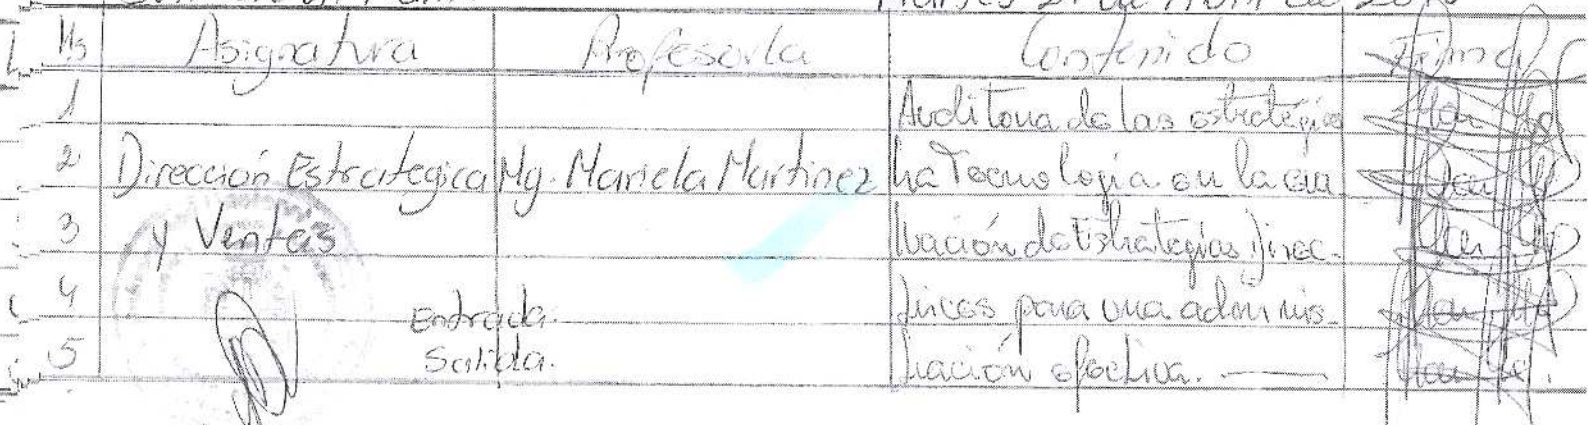 Martes 21 de Abril de
Hs Asignatura Profesor/a Contenido Firma
1 Auditoria de las estrategias
2 Dirección Estrategica Mg. Mariela Martinez La Tecnología en la eva
3 y Ventas luación de Estrategias Direc-
4 Entrada. para una adminis-
5 Salida. tración efectiva.